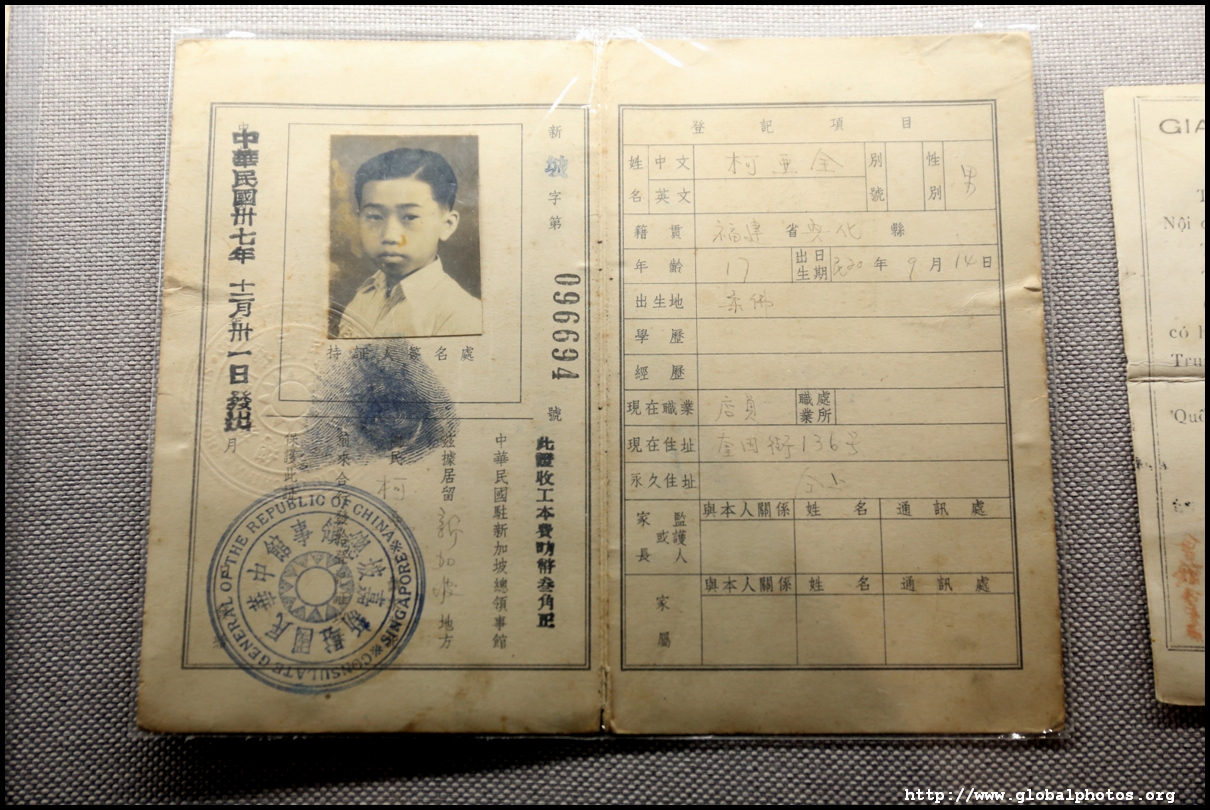 新 號 字 第 096694 號
持 證 人 簽 名 處
中華民國駐新加坡總領事館
茲據居留 新加坡 地方
此證收工本費叻幣叁角正
中華民國卅七年十二月卅一日發出
月
CONSULATE GENERAL OF THE REPUBLIC OF CHINA
SINGAPORE
登 記 項 目
姓名 中文 柯亜全 別號 性別 男
英文
籍貫 福建 省 興化 縣
年齡 17 出生日期 民20 年 9 月 14 日
出生地 柔佛
學歷
經歷
現在職業 店員 職業處所
現在住址 奎因街136号
永久住址 仝上
家長或監護人 與本人關係 姓名 通訊處
家屬 與本人關係 姓名 通訊處
GIA
Nội
có
Tru
'Quố
http://www.globalphotos.org